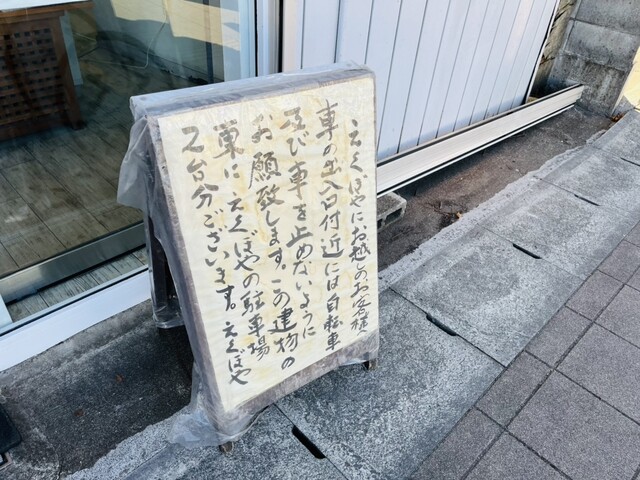 えくぼやにお越しのお客様
車の出入口付近には自転車
及び車を止めないように
お願致します。この建物の
裏に えくぼやの駐車場
2台分ございます。えくぼや